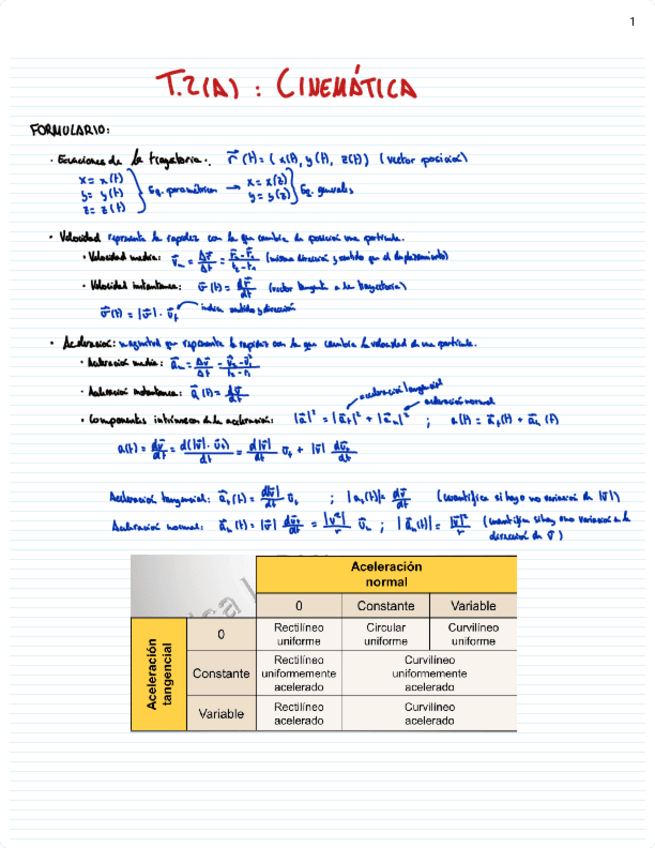 1
T.2(A) : CINEMÁTICA
FORMULARIO:
· Ecuaciones de la trayectoria: r⃗(t) = (x(t), y(t), z(t)) (vector posición)
x = x(t)
y = y(t) } Eq. paramétricas → x = x(z)
z = z(t) y = y(z) } Eq. generales
· Velocidad representa la rapidez con la que cambia de posición una partícula.
· Velocidad media: v⃗ₘ = Δr⃗/Δt = (r⃗₂-r⃗₁)/(t₂-t₁) (misma dirección y sentido que el desplazamiento)
· Velocidad instantánea: v⃗(t) = dr⃗/dt (vector tangente a la trayectoria)
v⃗(t) = |v⃗| · u⃗ₜ indica sentido y dirección
· Aceleración: magnitud que representa la rapidez con la que cambia la velocidad de una partícula.
· Aceleración media: a⃗ₘ = Δv⃗/Δt = (v⃗₂-v⃗₁)/(t₂-t₁)
· Aceleración instantánea: a⃗(t) = dv⃗/dt
aceleración tangencial
aceleración normal
· Componentes intrínsecas de la aceleración: |a⃗|² = |a⃗ₜ|² + |a⃗ₙ|² ; a(t) = a⃗ₜ(t) + a⃗ₙ(t)
a(t) = dv⃗/dt = d(|v⃗| · u⃗ₜ)/dt = d|v⃗|/dt u⃗ₜ + |v⃗| du⃗ₜ/dt
Aceleración tangencial: a⃗ₜ(t) = d|v⃗|/dt u⃗ₜ ; |aₜ(t)| = dv⃗/dt (cuantifica si hay o no variación de |v⃗|)
Aceleración normal: a⃗ₙ(t) = |v⃗| du⃗ₜ/dt = |v²|/r u⃗ₙ ; |a⃗ₙ(t)| = |v⃗|²/r (cuantifica si hay o no variación de la
dirección de v⃗)
Aceleración
normal
0 Constante Variable
Aceleración
tangencial
0 Rectilíneo uniforme Circular uniforme Curvilíneo uniforme
Constante Rectilíneo uniformemente acelerado Curvilíneo uniformemente acelerado
Variable Rectilíneo acelerado Curvilíneo acelerado